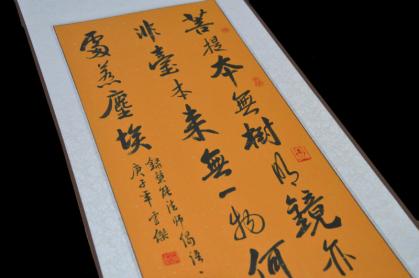 菩提本無樹明鏡亦
非臺本来無一物何
處惹塵埃
錄慧能法師偈語
庚子年雲傑